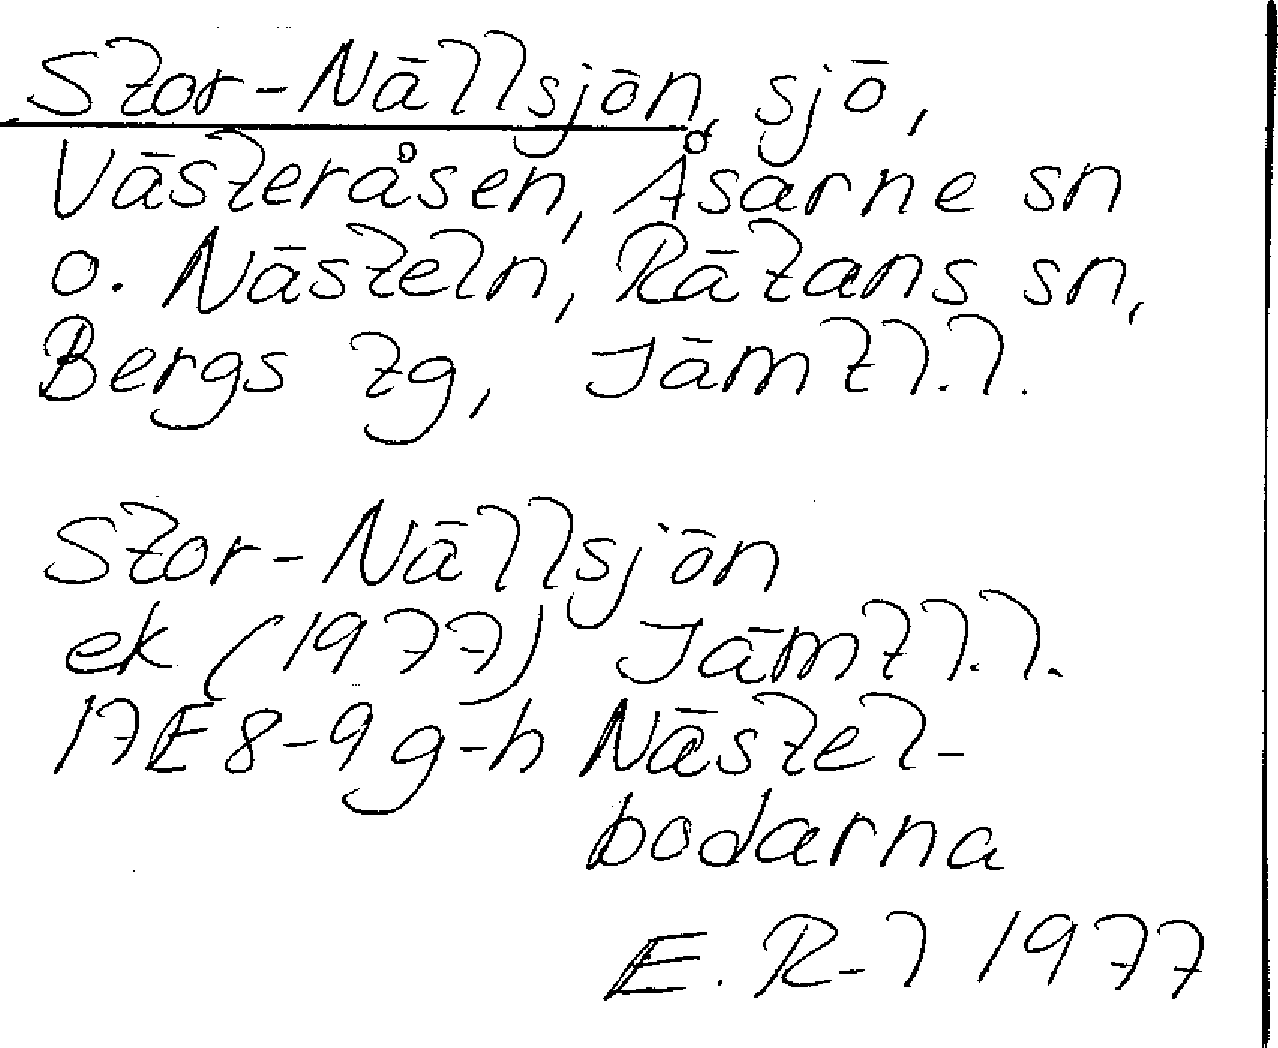 Stor-Nällsjön, sjö,
Västeråsen, Åsarne sn
o. Nästeln, Rätans sn,
Bergs tg, Jämtl.l.
Stor-Nällsjön
ek (1977) Jämtl.l.
17E 8-9 g-h Nästel-
bodarna
E. R-l 1977